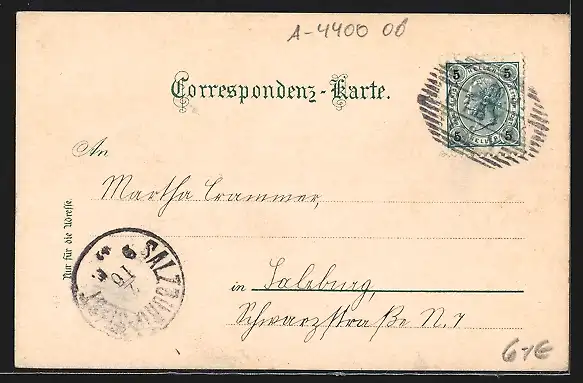 A-4400 06
Correspondenz-Karte.
5 5
5 5
An
Martha Crammer,
Nur für die Adresse.
SALZBURG STADT
in Salzburg,
Schwarzstraße N. 7